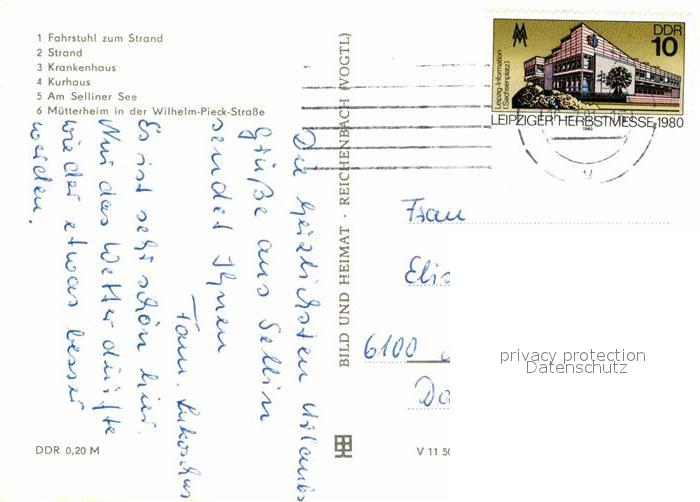 1 Fahrstuhl zum Strand
2 Strand
3 Krankenhaus
4 Kurhaus
5 Am Selliner See
6 Mütterheim in der Wilhelm-Pieck-Straße
Die herzlichsten Urlaubs
grüße aus Sellin
sendet Ihnen
Fam.
Es ist sehr schön hier.
Nur das Wetter dürfte
wieder etwas besser
werden.
DDR 0,20 M
BILD UND HEIMAT · REICHENBACH (VOGTL)
V 11 50
DDR
10
Leipzig-Information
(Sachsenplatz)
LEIPZIGER HERBSTMESSE 1980
1980
y
Frau
Elis
6100
Da
privacy protection
Datenschutz